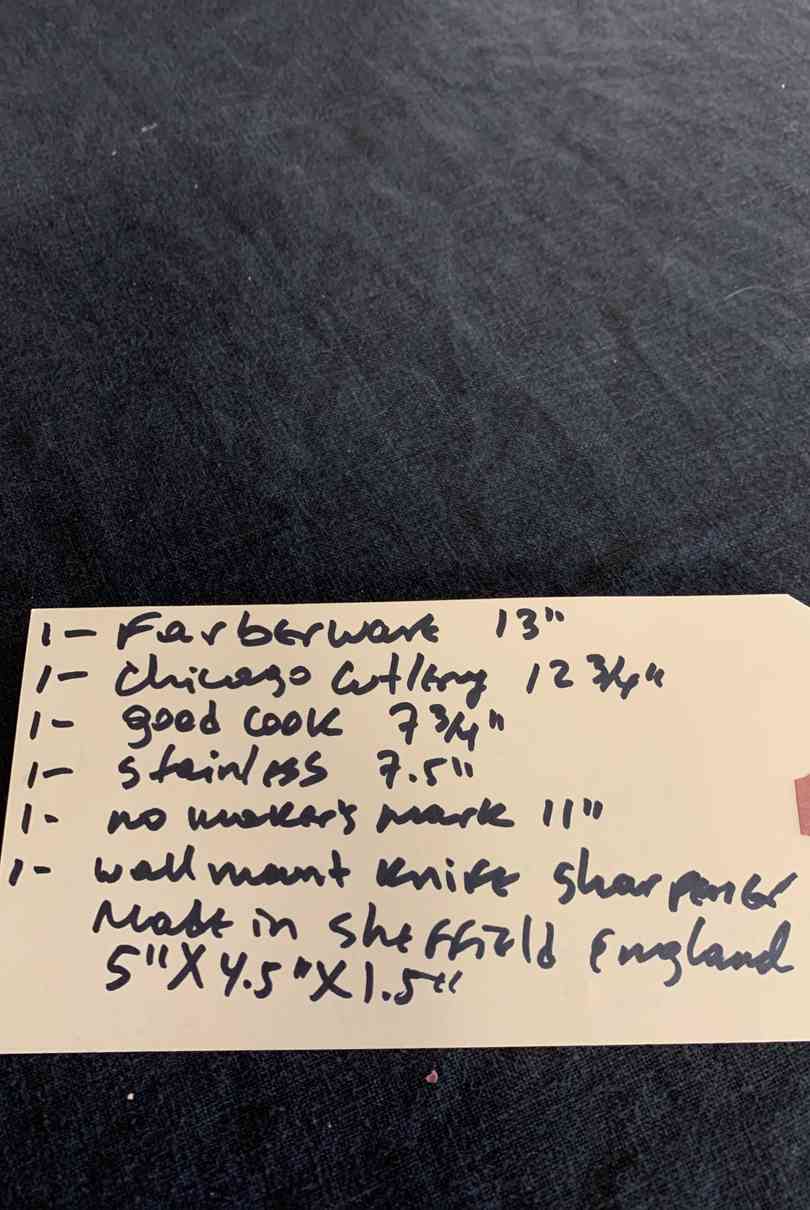 1- Farberware 13"
1- Chicago Cutlery 12 3/4"
1- good cook 7 3/4"
1- stainless 7.5"
1- no maker's mark 11"
1- wall mount knife sharpener
Made in Sheffield England
5" X 4.5" X 1.5"